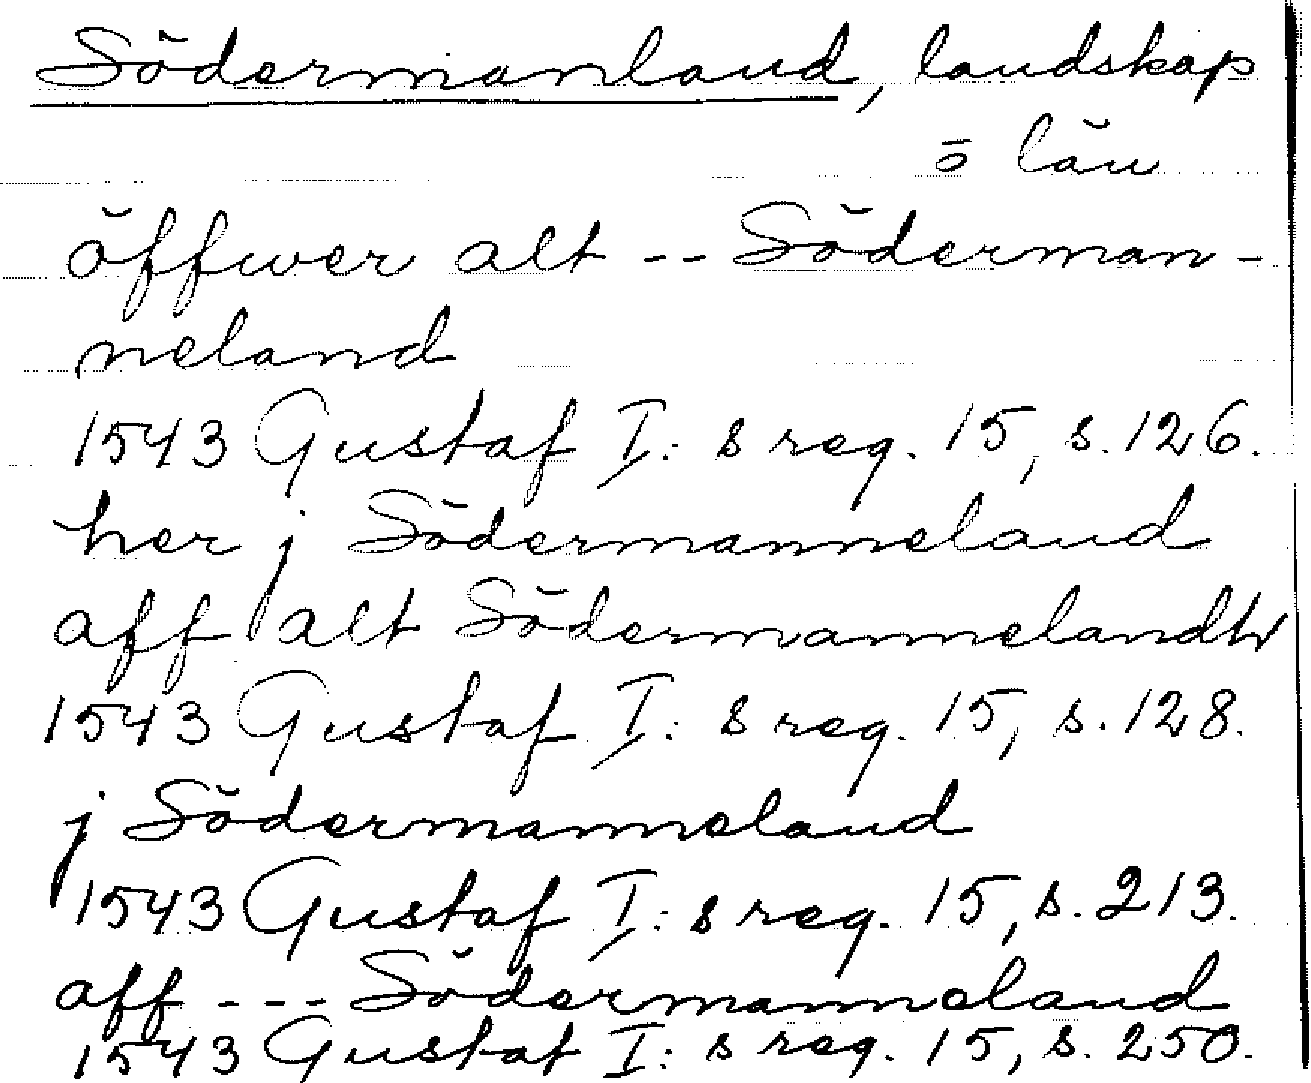 Södermanland, landskap
o län
öffwer alt -- Söderman-
neland
1543 Gustaf I:s reg. 15, s. 126.
her j Södermanneland
aff alt Södermannelandh
1543 Gustaf I:s reg. 15, s. 128.
j Södermanneland
1543 Gustaf I:s reg. 15, s. 213.
aff --- Södermanneland
1543 Gustaf I:s reg. 15, s. 250.